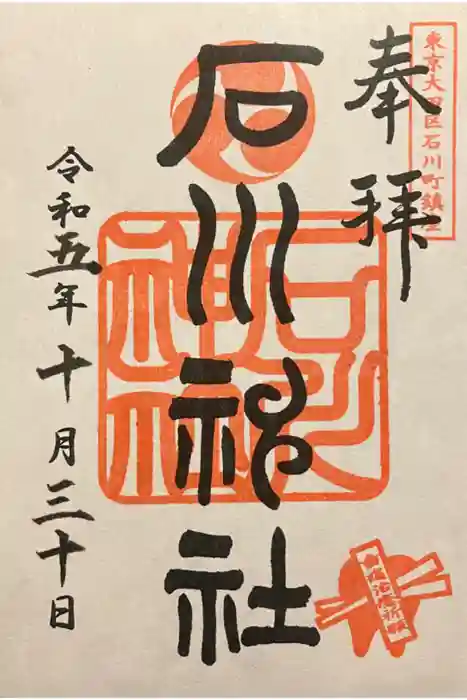 東京大田区石川町鎮座
奉拝
石川神社
石川神社
令和五年十月三十日